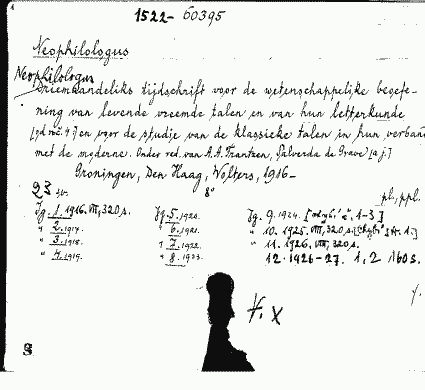 1522-60395
Neophilologus
Neophilologus
Driemaandeliks tijdschrift voor de wetenschappelijke beoefe-
ning van levende vreemde talen en van hun letterkunde
en voor de studie van de klassieke talen in hun verband
met de moderne. Onder red. van A.A. Frantzen, Salverda de Grave [a.j.]
Groningen, Den Haag, Wolters, 1916-
23 8°
pl., ppl.
Jg. 1. 1916. VIII, 320 s. Jg. 5. 1920. Jg. 9. 1924. 1-3]
" 2. 1917. " 6. 1921. " 10. 1925. VIII, 320 s.
" 3. 1918. " 7. 1922. " 11. 1926. VIII, 320 s.
" 4. 1919. " 8. 1923. 12. 1926-27. 1, 2 160 s.